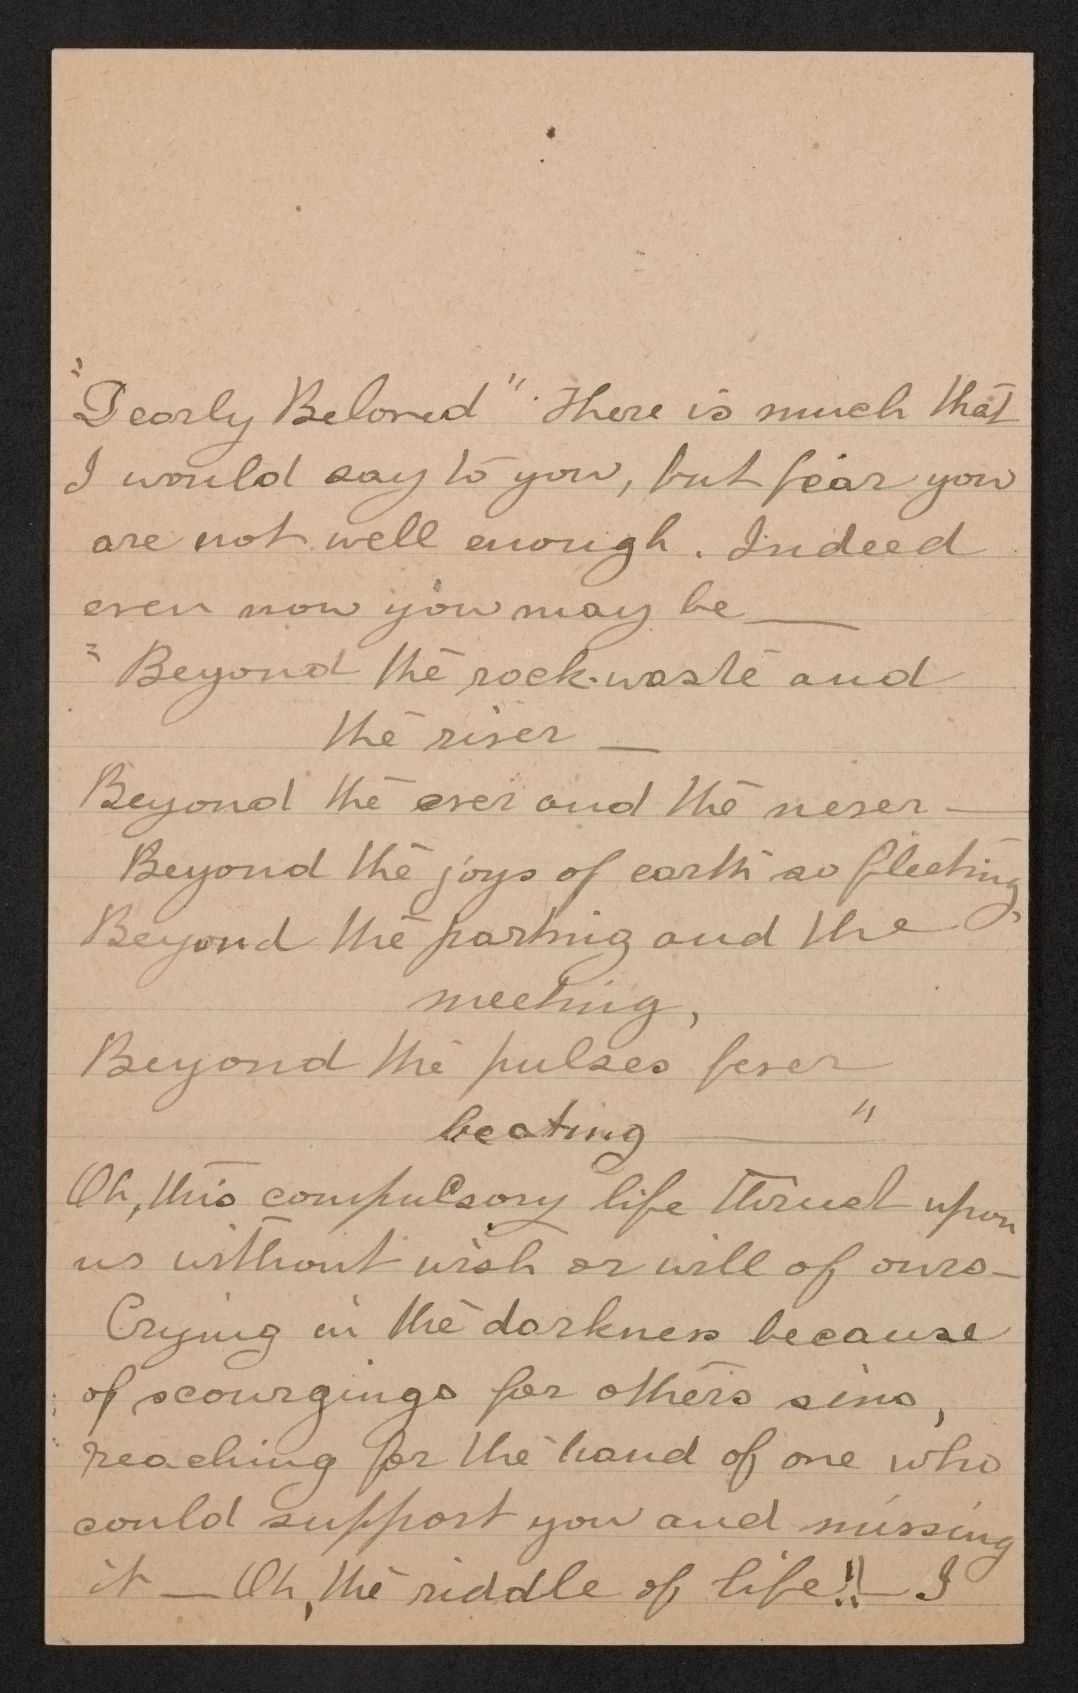 "Dearly Beloved" There is much that
I would say to you, but fear you
are not well enough. Indeed
even now you may be —
"Beyond the rock-waste and
the river —
Beyond the ever and the never —
Beyond the joys of earth so fleeting,
Beyond the parting and the
meeting,
Beyond the pulses fever
beating — "
Oh, this compulsory life thrust upon
us without wish or will of ours —
Crying in the darkness because
of scourgings for others sins,
reaching for the hand of one who
could support you and missing
it — Oh, the riddle of life!! — I